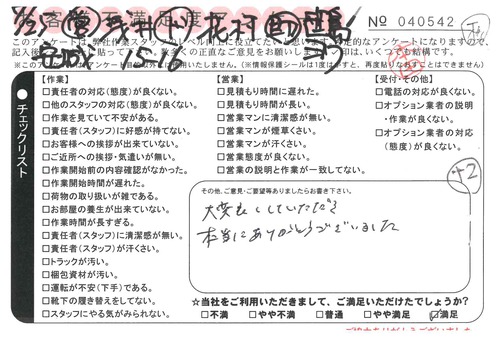 No 040542
このアンケートは、弊社作業スタッフのレベル向上に役立てたいと思います。否定的なアンケートになりますので、
※このアンケートは、
※(※情報保護シールは1度はがすと、再度貼りなおすことはできません)
チェックリスト
【作業】
□責任者の対応(態度)が良くない。
□他のスタッフの対応(態度)が良くない。
□作業を見ていて不安がある。
□責任者(スタッフ)に好感が持てない。
□お客様への挨拶が出来ていない。
□ご近所への挨拶・気遣いが無い。
□作業開始前の内容確認がなかった。
□作業開始時間が遅れた。
□荷物の取り扱いが雑である。
□お部屋の養生が出来ていない。
□作業時間が長すぎる。
□責任者(スタッフ)に清潔感が無い。
□責任者(スタッフ)が汗くさい。
□トラックが汚い。
□梱包資材が汚い。
□運転が不安(下手)である。
□靴下の履き替えをしてない。
□スタッフにやる気がみられない。
【営業】
□見積もり時間に遅れた。
□見積もり時間が長い。
□営業マンに清潔感が無い。
□営業マンが煙草くさい。
□営業マンが汗くさい。
□営業態度が良くない。
□営業の説明と作業が一致してない。
【受付・その他】
□電話の対応が良くない。
□オプション業者の説明
・作業が良くない。
□オプション業者の対応
(態度)が良くない。
+2
その他、ご意見・ご要望等ありましたらお書き下さい。
大変良くしていただき
本当にありがとうございました
☆当社をご利用いただきまして、ご満足いただけてしょうか?
□不満 □やや不満 □普通 □やや満足 ☑満足